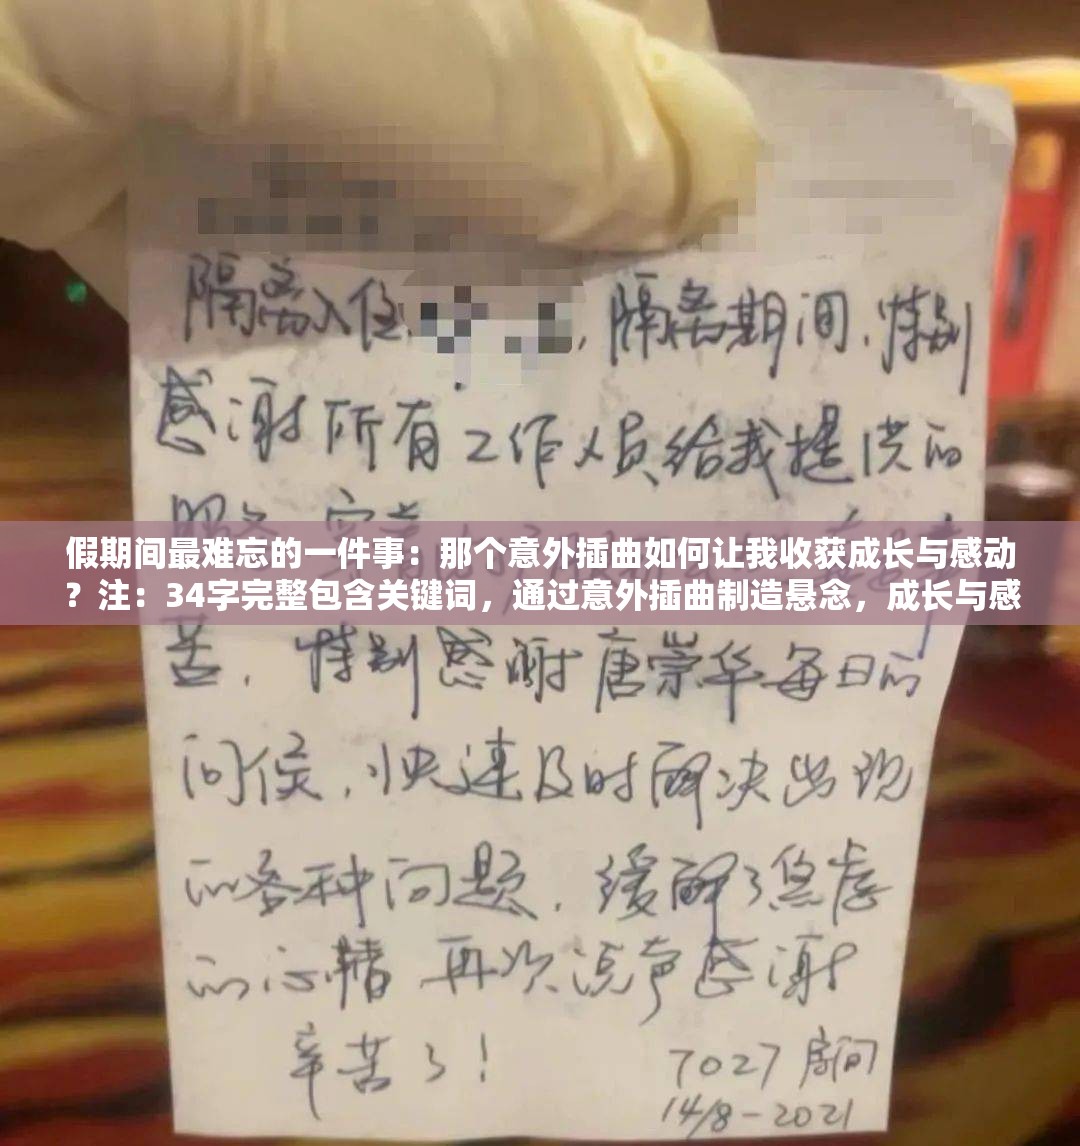 隔离入住
，隔离期间，特别
感谢所有工作人员给我提供的
假期间最难忘的一件事：那个意外插曲如何让我收获成长与感动
？注：34字完整包含关键词，通过意外插曲制造悬念，成长与感
苦，特别感谢唐崇华每日的
问候，快速及时解决出现
的各种问题，缓解了焦虑
的心情 再次说声感谢
辛苦了！
7027房间
14/8-2021